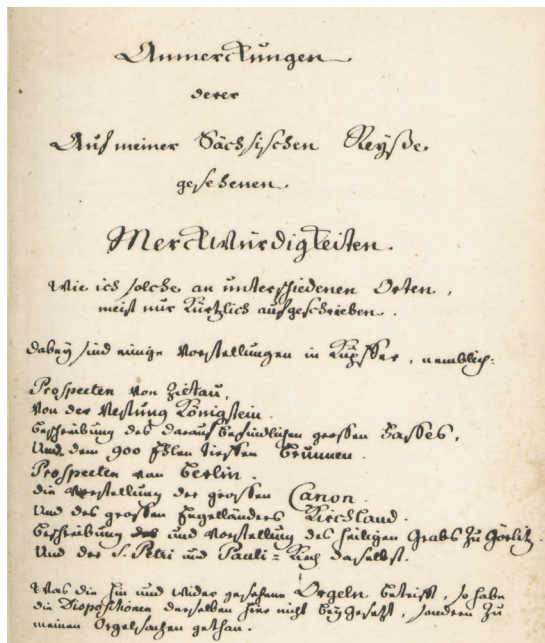 Anmerckungen
derer
Auf meiner Sächsischen Reyße
gesehenen
Merckwürdigkeiten.
Wie ich solche an unterschiedenen Orten,
meist nur kürtzlich aufgeschrieben.
Dabey sind einige Vorstellungen in Kupffer, nemblich:
Prospecten von Zittau,
Von der Vestung Königstein.
Beschreibung des darauf befindlichen grossen Fasses,
Und dem 900 Ehlen tieffen Brunnen.
Prospecten von Berlin.
die Vorstellung der grossen Canon.
Und des grossen Engelländers Kirchland.
Beschreibung und Vorstellung des heiligen Grabs zu Görlitz.
Und der S. Petri und Pauli=Kirch daselbst.
Was die hin und wider gesehene Orgeln betrifft, so habe
die Dispositionen derselben hier nicht beygesetzt, sondern zu
meinen Orgelsachen gethan.